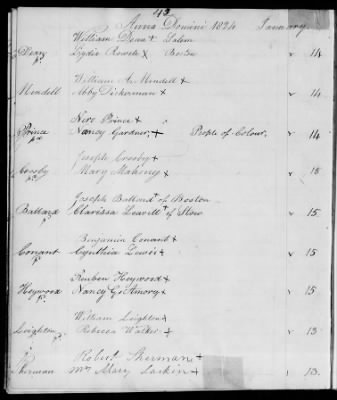 43
Anno Domini 1824 January
William Dean + Salem
Dean Lydia Rowele x Boston v 14
William A. Mindell +
Mindell Abby Dickerman + v 14
Nero Prince +
Prince Nancy Gardner, + People of Colour. v 14
Joseph Crosby +
Crosby Mary Mahony + v 15
Joseph Ballard + of Boston
Ballard Clarissa Leavitt + of Stow v 15.
Benjamin Conant +
Conant Cynthia Lewis + v 15
Reuben Heywood +
Heywood Nancy G. Amory + v 15
William Leighton +
Leighton Rebecca Walker + v 13
Robert Sherman +
Sherman Mrs Mary Larkin + v 13.